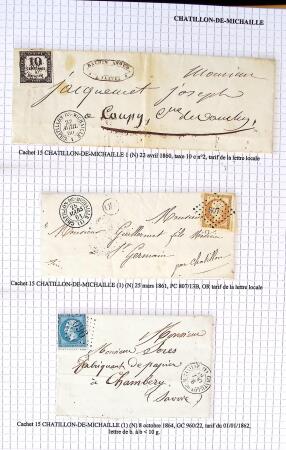 CHATILLON-DE-MICHAILLE
10
Monsieur
Jacquemet Joseph
à Coupy,
Cachet 15 CHATILLON-DE-MICHAILLE 1 (N) 22 avril 1860, taxe 10 c n°2, tarif de la lettre locale
Monsieur
Monsieur Guillermet fils
St Germain
par Chatillon
Ain
Cachet 15 CHATILLON-DE-MICHAILLE (1) (N) 25 mars 1861, PC 807/13B, OR tarif de la lettre locale
Monsieur
Monsieur
Fabriquant de papier
à Chambéry
(Savoie)
Cachet 15 CHATILLON-DE-MICHAILLE (1) (N) 8 octobre 1864, GC 960/22, tarif du 01/01/1862,
lettre de b. à/b < 10 g.